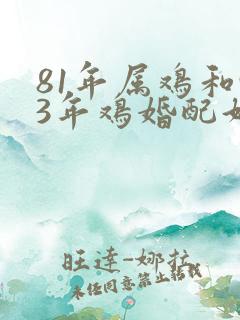 81年属鸡和
3年鸡婚配
旺達-娜拉
未经同意禁止转载